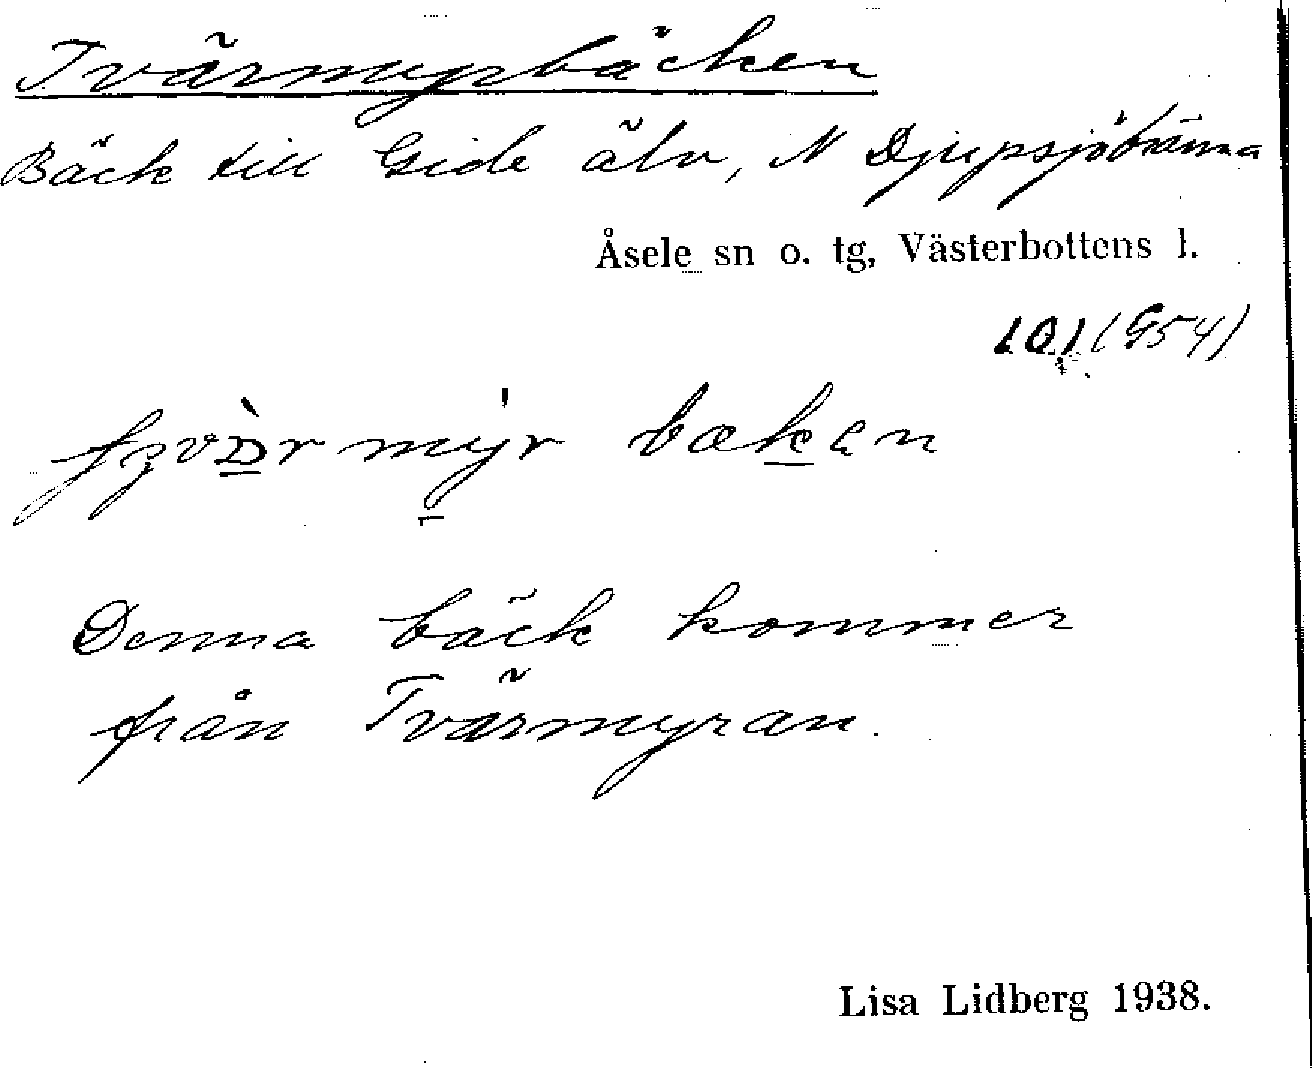 Tvärmyrbäcken
Bäck till Gide älv, N Djupsjöbränna
Åsele sn o. tg, Västerbottens l.
101 (954)
bäken
Denna bäck kommer
från Tvärmyran.
Lisa Lidberg 1938.